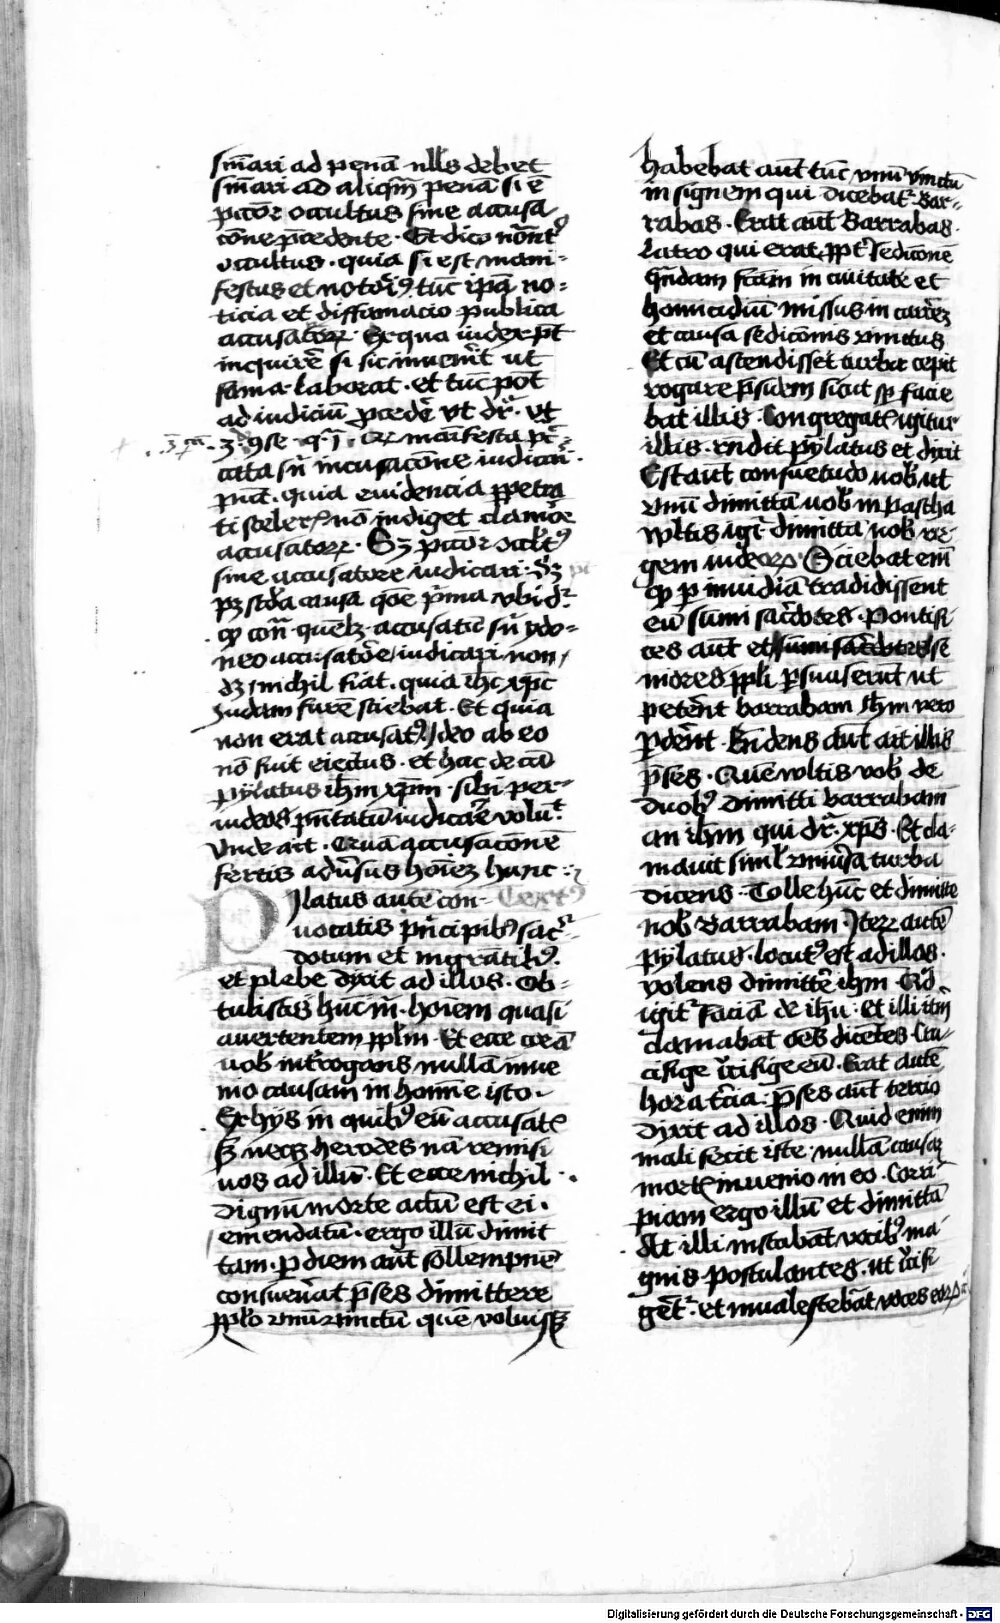 smari ad penā nlls debet
smari ad aliqm penā si ē
pctor occultus sine accusa
cōne pcedente · Et dico nōnt
occultus · quia si est mani=
festus et notoriꝰ tūc ipā no=
ticia et diffamacio publica
accusatorꝝ · Ex qua iudex pt
inquirē si sic invenit ut
fama laborat · et tūc pōt
ad iudiciū pcedē vt dr̄ · vt
manifesta pc̄
cata sn̄ incusacōne iudicari
quia evidencia ppetra
ti scelerꝭ nō indiget clamōe
accusatorꝝ · Sꝫ pctor occultꝰ
sine accusatore iudicari · Sꝫ
causa qōe pma vbi dr̄
accusatū sn̄ ydo=
neo accusatōre iudicari non
dꝫ nichil fiat · quia ihc xpc
Judam furē sciebat · Et quia
non erat accusatꝰ Ideo ab eo
nō fuit eiectus · et hac de cā
Pylatus ihm xpm · sibi per
iudeos pn̄tatū iudicare voluit
Unde ait · Quā accusacōnē
fertis adūsus hoīeꝫ hunc :
Textꝰ
Pilatus autē con=
vocatis pncipibꝰ sac̄=
dotum et migrātibꝰ
et plebe dyxit ad illos · Ob=
tulistis hūc m̄ · hoīem quasi
avertentem pplm · Et ecce corā
vob int̄rogans nullā inve
nio causam in homīe isto ·
Ex hys in quibꝰ eū accusatꝭ
sꝫ necꝫ herodes nā remisi
vos ad illū · Et ecce nichil
dignū morte actū est ei ·
emendatū · ergo illū dimit
tam · p diem aūt sollempnē
consueverat pses dimittere
pplo vnū vinctū quē voluisꝫ
habebat aūt tūc vnū vinctū
insignem qui dicebat̄ Bar=
rabas · Erat aūt Barrabas
latro qui erat ppt̄ sedicōnē
qndam fcām in civitate et
homicidiū missus in carcēꝫ
et causa sedicōnis vinctus
Et cū ascendisset turba cepit
rogare psidem sicut sp facie
bat illis · Congregatꝭ igitur
illis · rn̄dit Pylatus et dixit
Est aūt consuetudo vob ut
vnū dimittā vob in pascha
wltis igr̄ dimittā vob re=
gem iudeorꝝ · Sciebat em̄
qꝫ p invidiā tradidissent
eū sūmi sacdotes · Pontifi
ces aūt et sūmi sacdotes se
niores ppli psuaserūt ut
petērnt barrabam Ihm vero
pdērnt · Rn̄dens aūt ait illis
pses · Quē wltis vob de
duobꝰ dimitti barrabam
an ihm qui dr̄ xps · Et cla=
mavit siml vnivsa turba
dicens · Tolle hūc et dimitte
nob Barrabam · Iterꝝ autē
Pylatus · locutꝰ est ad illos ·
volens dimittē ihm · Qd
igit̄ faciā de ihu · Et illi itm̄
clamabāt oēs dicētes Cru=
cifige crucifige eū · Erat autē
hora tcia · pses aūt tercio
dyxit ad illos · Quid enim
mali fecit iste · nullā causaꝫ
mortꝭ invenio in eo · Corri
piam ergo illū et dimittā
At illi instabāt vocibꝰ ma
gnis postulantes · ut crucifi
get̄ · et invalescebāt voces eorꝝ